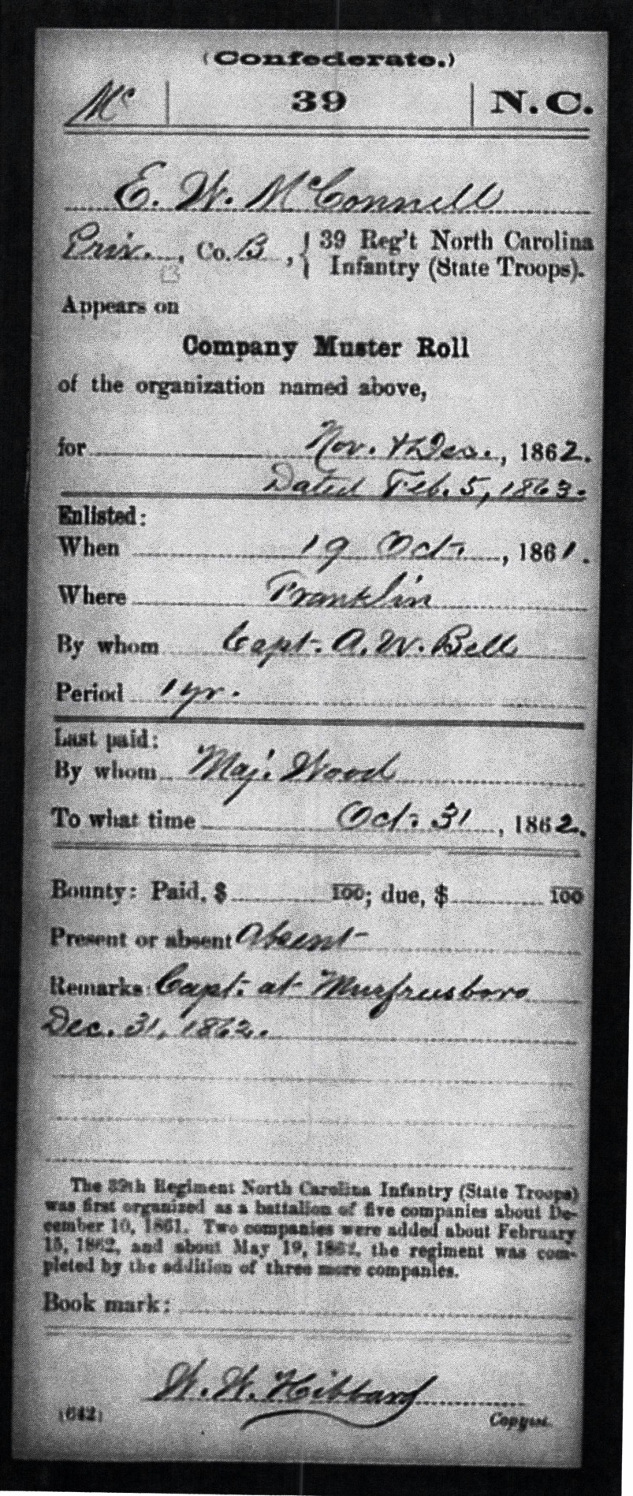 (Confederate.)
Mc | 39 | N.C.
E. W. McConnell
Priv., Co. B, { 39 Reg't North Carolina
Infantry (State Troops).
13
Appears on
Company Muster Roll
of the organization named above,
for Nov. & Dec., 1862.
Dated Feb. 5, 1863.
Enlisted:
When 19 Oct., 1861.
Where Franklin
By whom Capt. A. W. Bell
Period 1 yr.
Last paid:
By whom Maj. Wood
To what time Oct. 31, 1862.
Bounty: Paid, $ 100; due, $ 100
Present or absent Absent
Remarks: Capt. at Murfreesboro
Dec. 31, 1862.
The 39th Regiment North Carolina Infantry (State Troops)
was first organized as a battalion of five companies about De-
cember 10, 1861. Two companies were added about February
15, 1862, and about May 19, 1862, the regiment was com-
pleted by the addition of three more companies.
Book mark:
W. W. Hibbard
(642) Copyist.